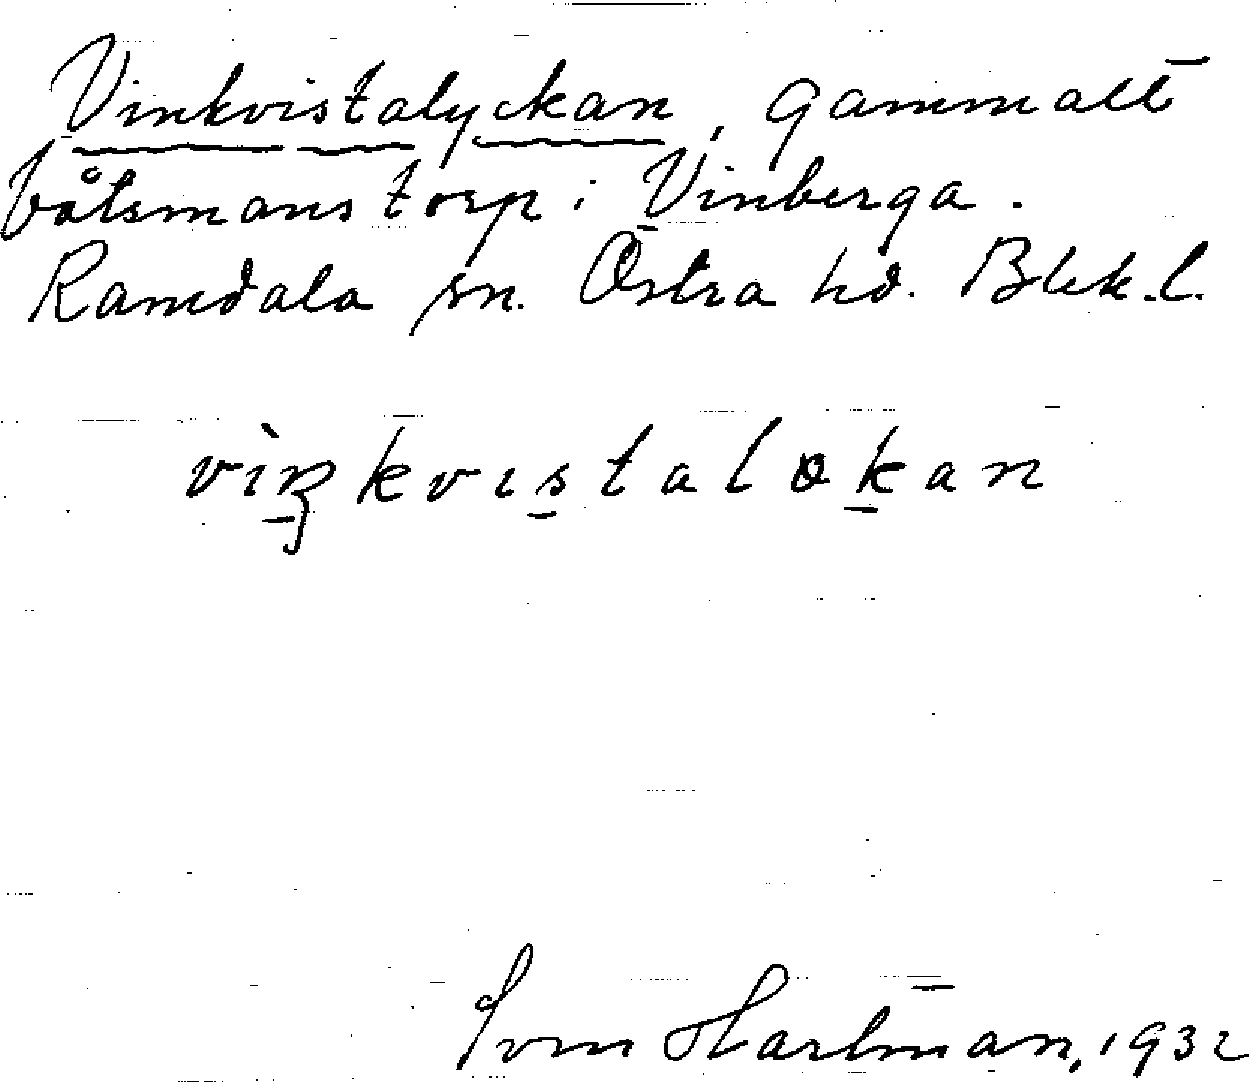 Vinkvistalyckan, gammalt
båtsmanstorp i Vinberga.
Ramdala sn. Östra hd. Blek.l.
vìŋkvıstaløkan
Hartman, 1932